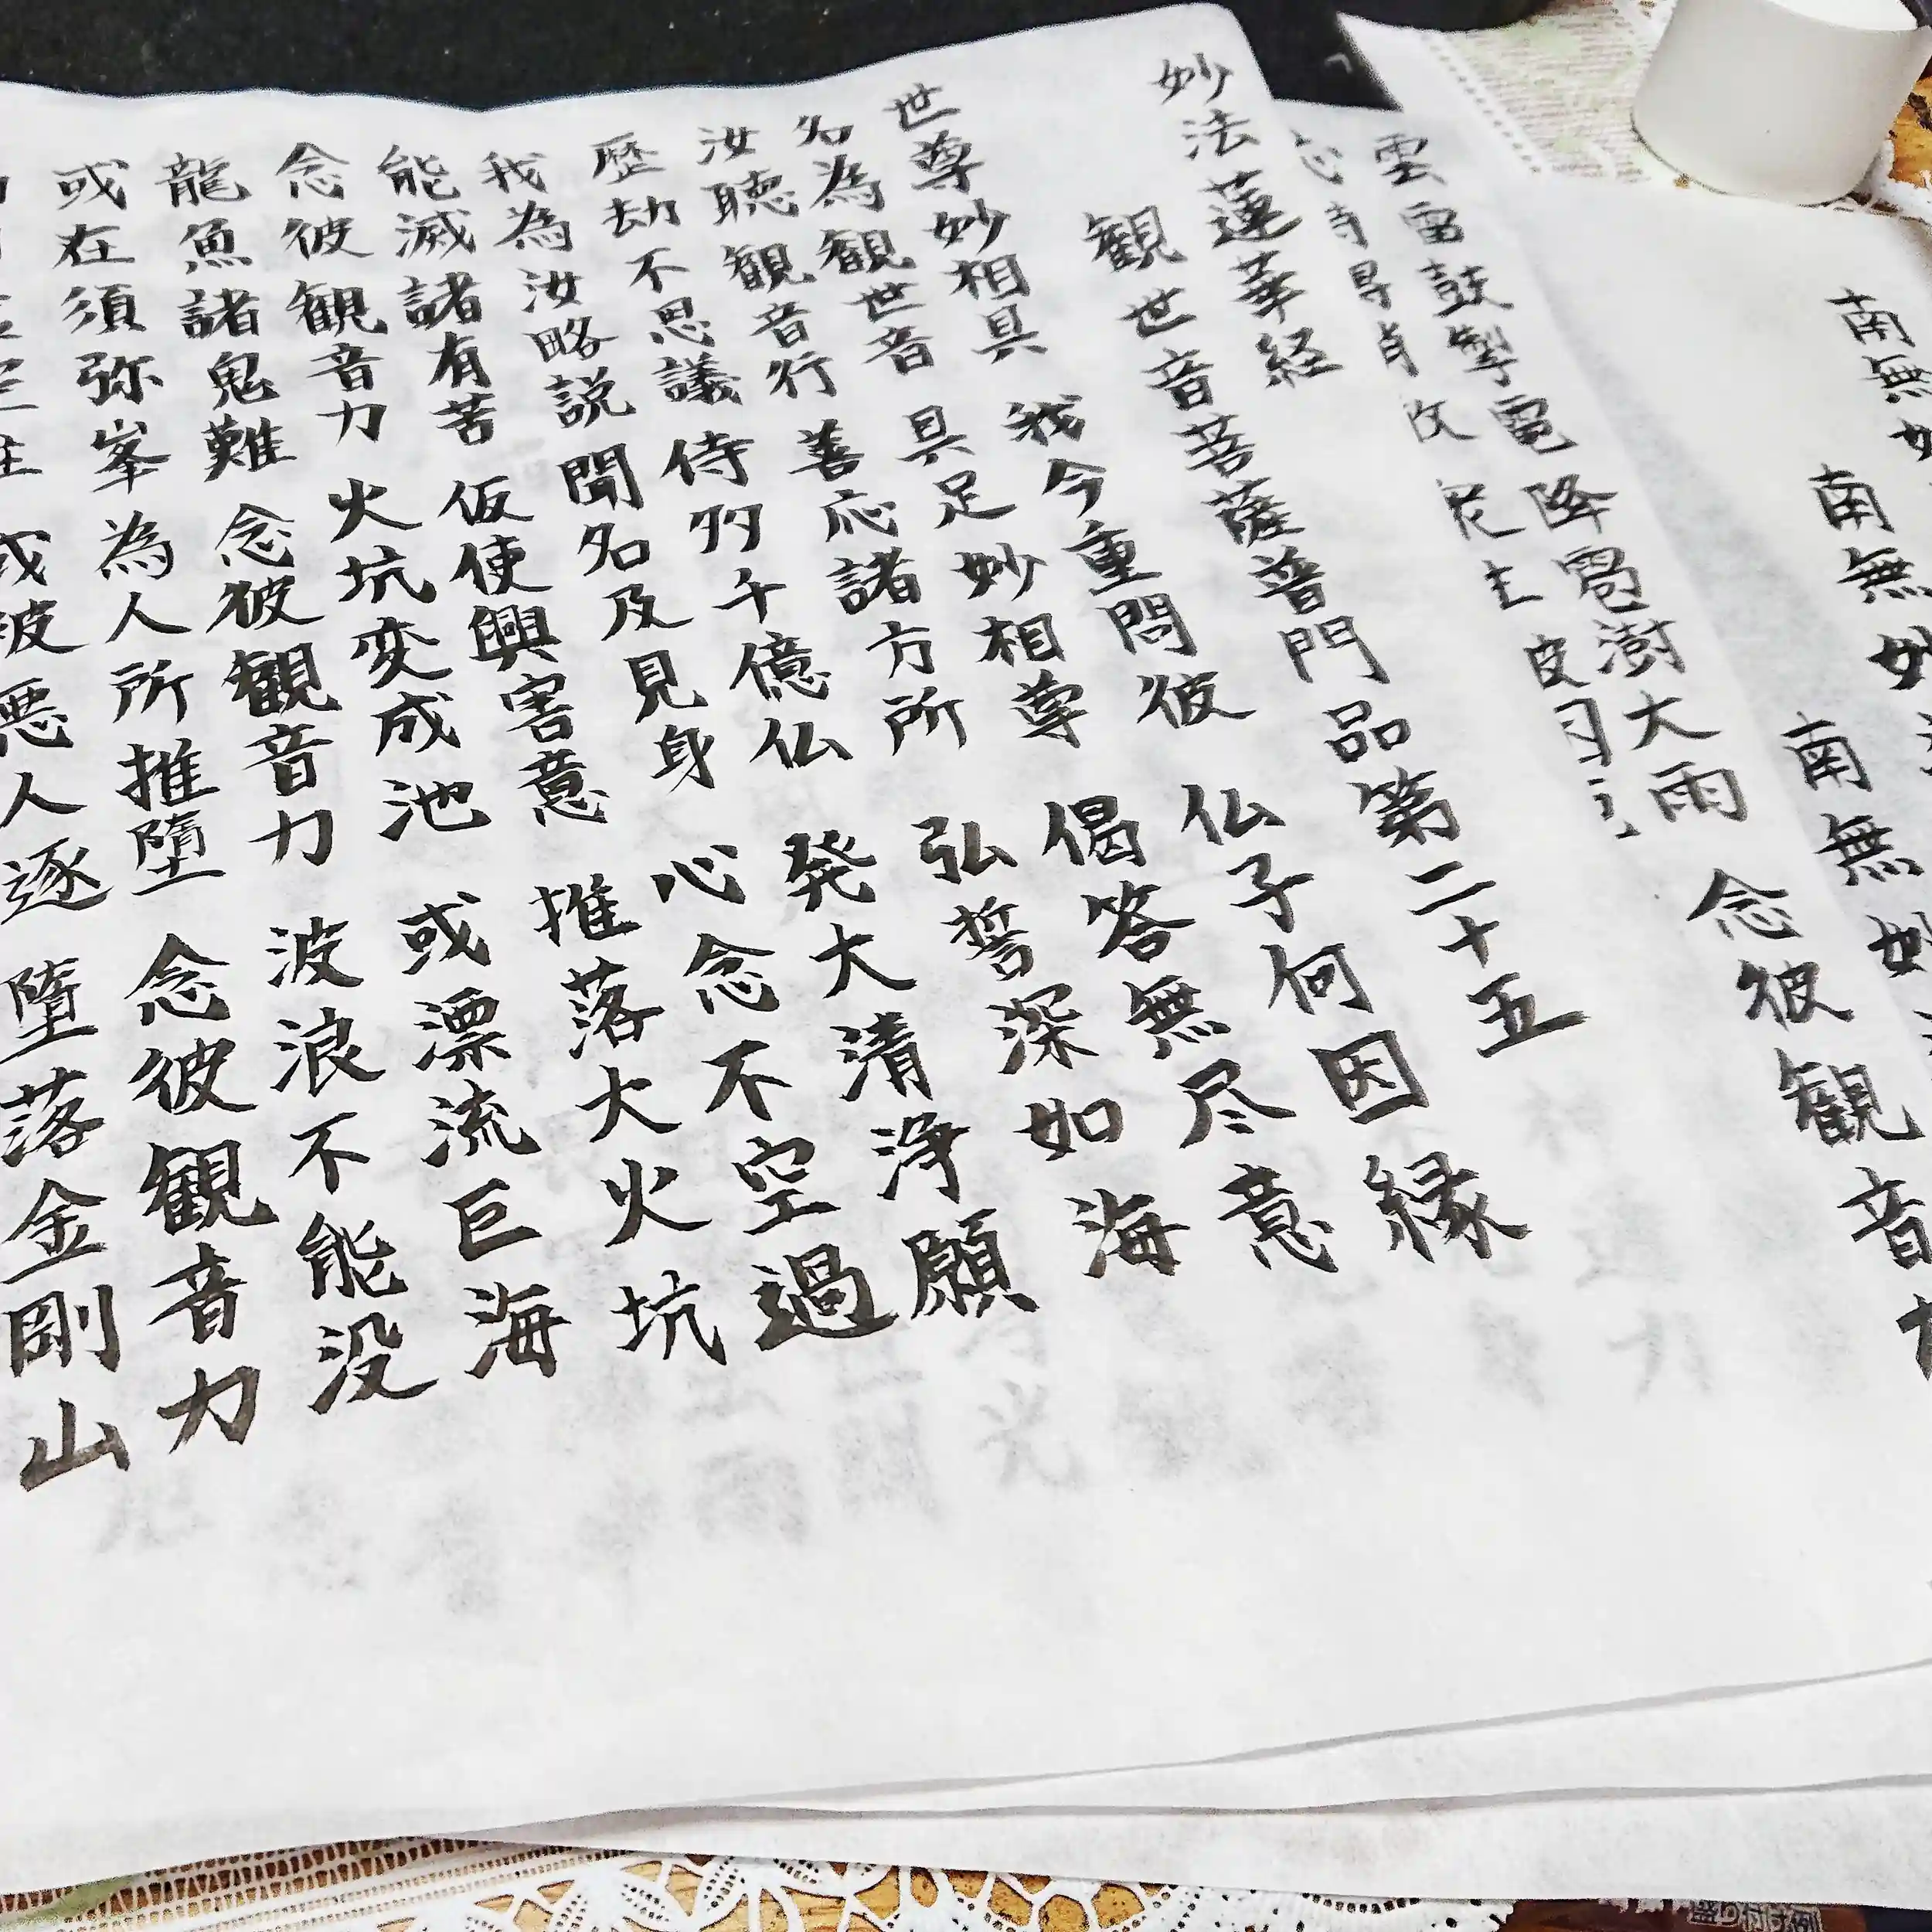 南無
南無妙
南無妙
雲雷鼓掣電 降雹澍大雨 念彼観音
妙法蓮華経
観世音菩薩普門品第二十五
世尊妙相具 我今重問彼 仏子何因縁
名為観世音 具足妙相尊 偈答無尽意
汝聴観音行 善応諸方所 弘誓深如海
歴劫不思議 侍多千億仏 発大清浄願
我為汝略説 聞名及見身 心念不空過
能滅諸有苦 仮使興害意 推落大火坑
念彼観音力 火坑変成池 或漂流巨海
龍魚諸鬼難 念彼観音力 波浪不能没
或在須弥峯 為人所推墮 念彼観音力
或被悪人逐 墮落金剛山